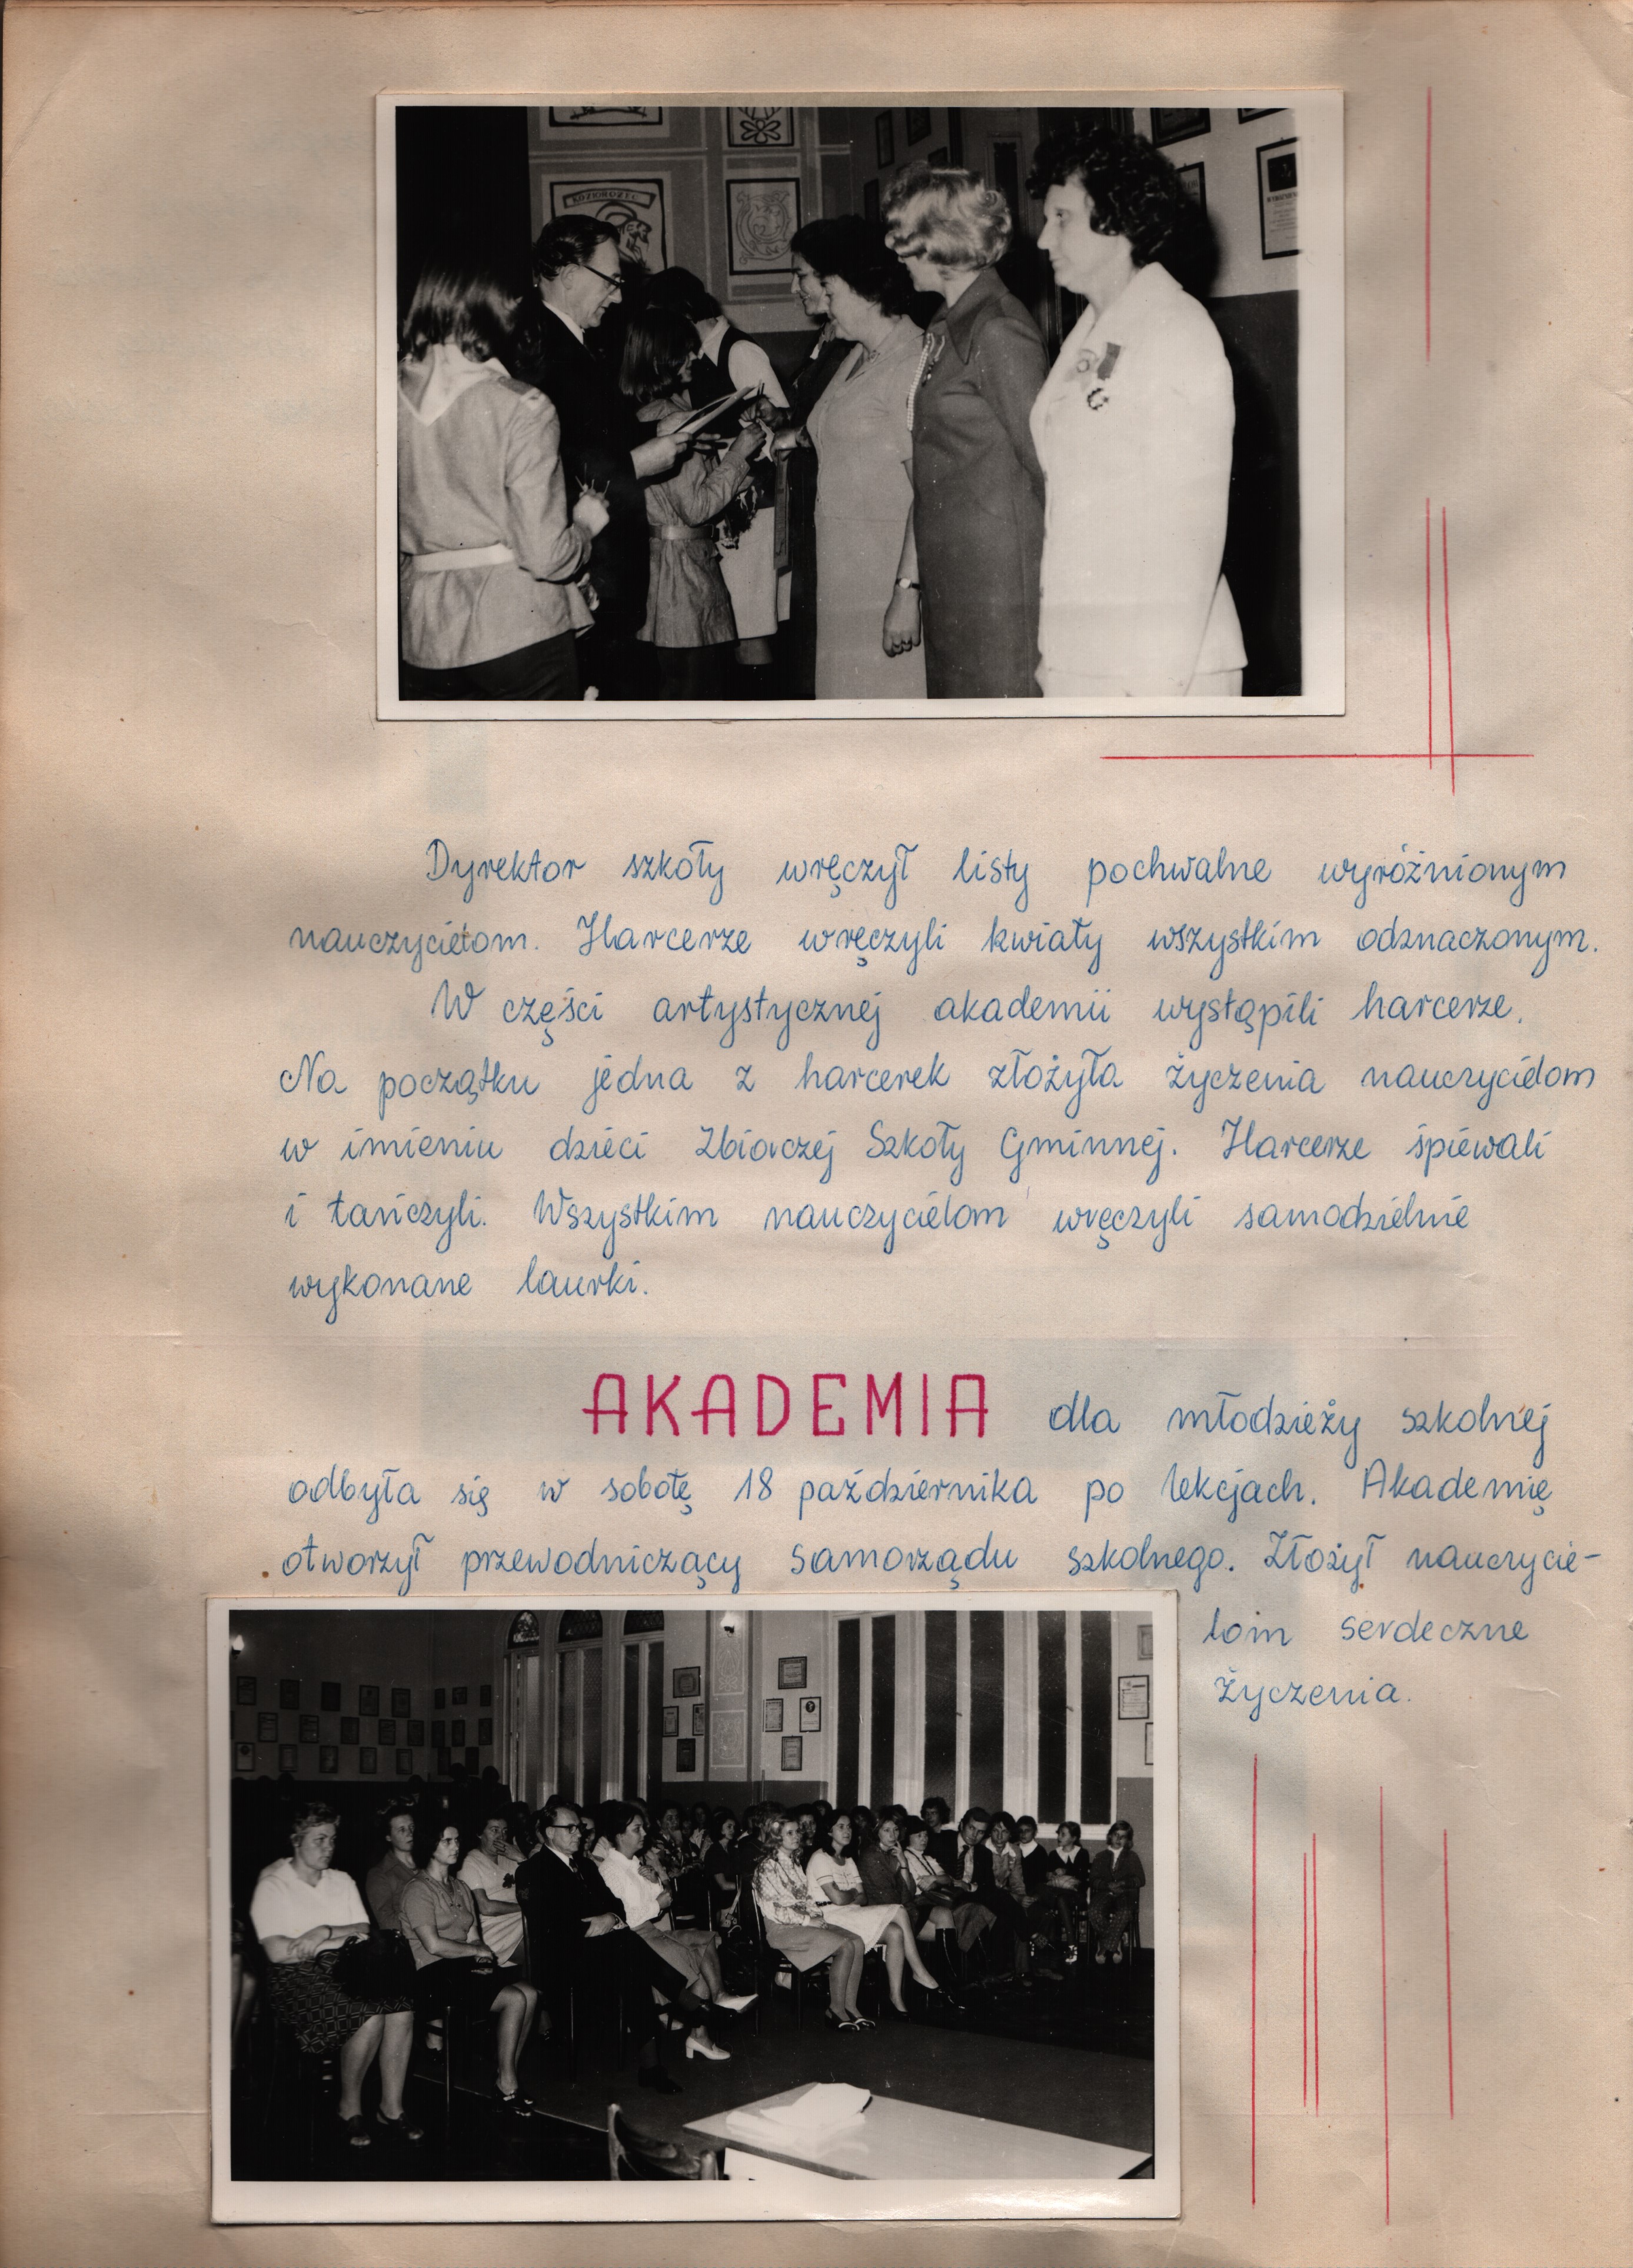 KOZIOROŻEC
Dyrektor szkoły wręczył listy pochwalne wyróżnionym
nauczycielom. Harcerze wręczyli kwiaty wszystkim odznaczonym.
W części artystycznej akademii wystąpili harcerze.
Na początku jedna z harcerek złożyła życzenia nauczycielom
w imieniu dzieci Zbiorczej Szkoły Gminnej. Harcerze śpiewali
i tańczyli. Wszystkim nauczycielom wręczyli samodzielnie
wykonane laurki.
AKADEMIA dla młodzieży szkolnej
odbyła się w sobotę 18 października po lekcjach. Akademię
otworzył przewodniczący samorządu szkolnego. Złożył nauczycie-
lom serdeczne
życzenia.